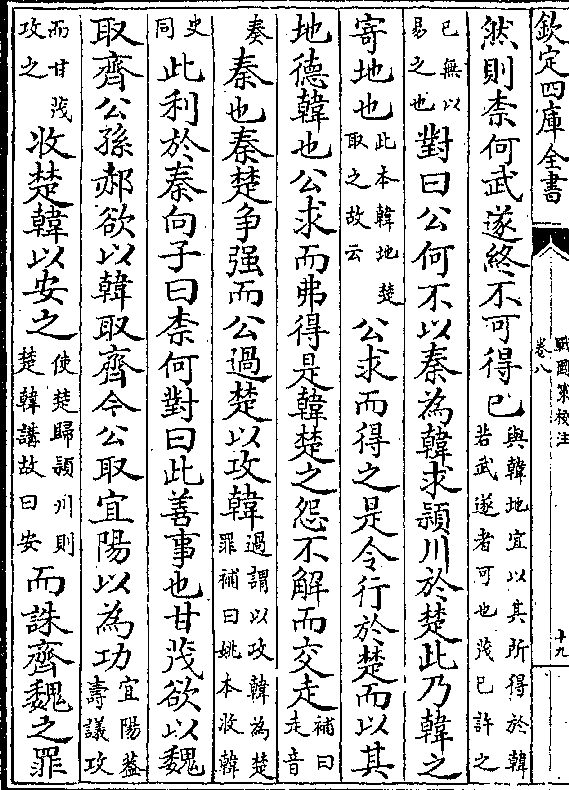 欽定四庫全書
戰國策校注
卷八
十九
然則柰何武遂終不可得已與韓地宜以其所得於韓若武遂者可也茂已許之
已無以易之也對曰公何不以秦為韓求潁川於楚此乃韓之
寄地也此本韓地楚取之故云公求而得之是令行於楚而以其
地德韓也公求而弗得是韓楚之怨不解而交走補曰走音
奏秦也秦楚爭强而公過楚以攻韓過謂以攻韓為楚罪補曰姚本收韓
史同此利於秦向子曰柰何對曰此善事也甘茂欲以魏
取齊公孫郝欲以韓取齊今公取宜陽以為功宜陽葢壽議攻
而甘茂攻之收楚韓以安之使楚歸潁川則楚韓講故曰安而誅齊魏之罪